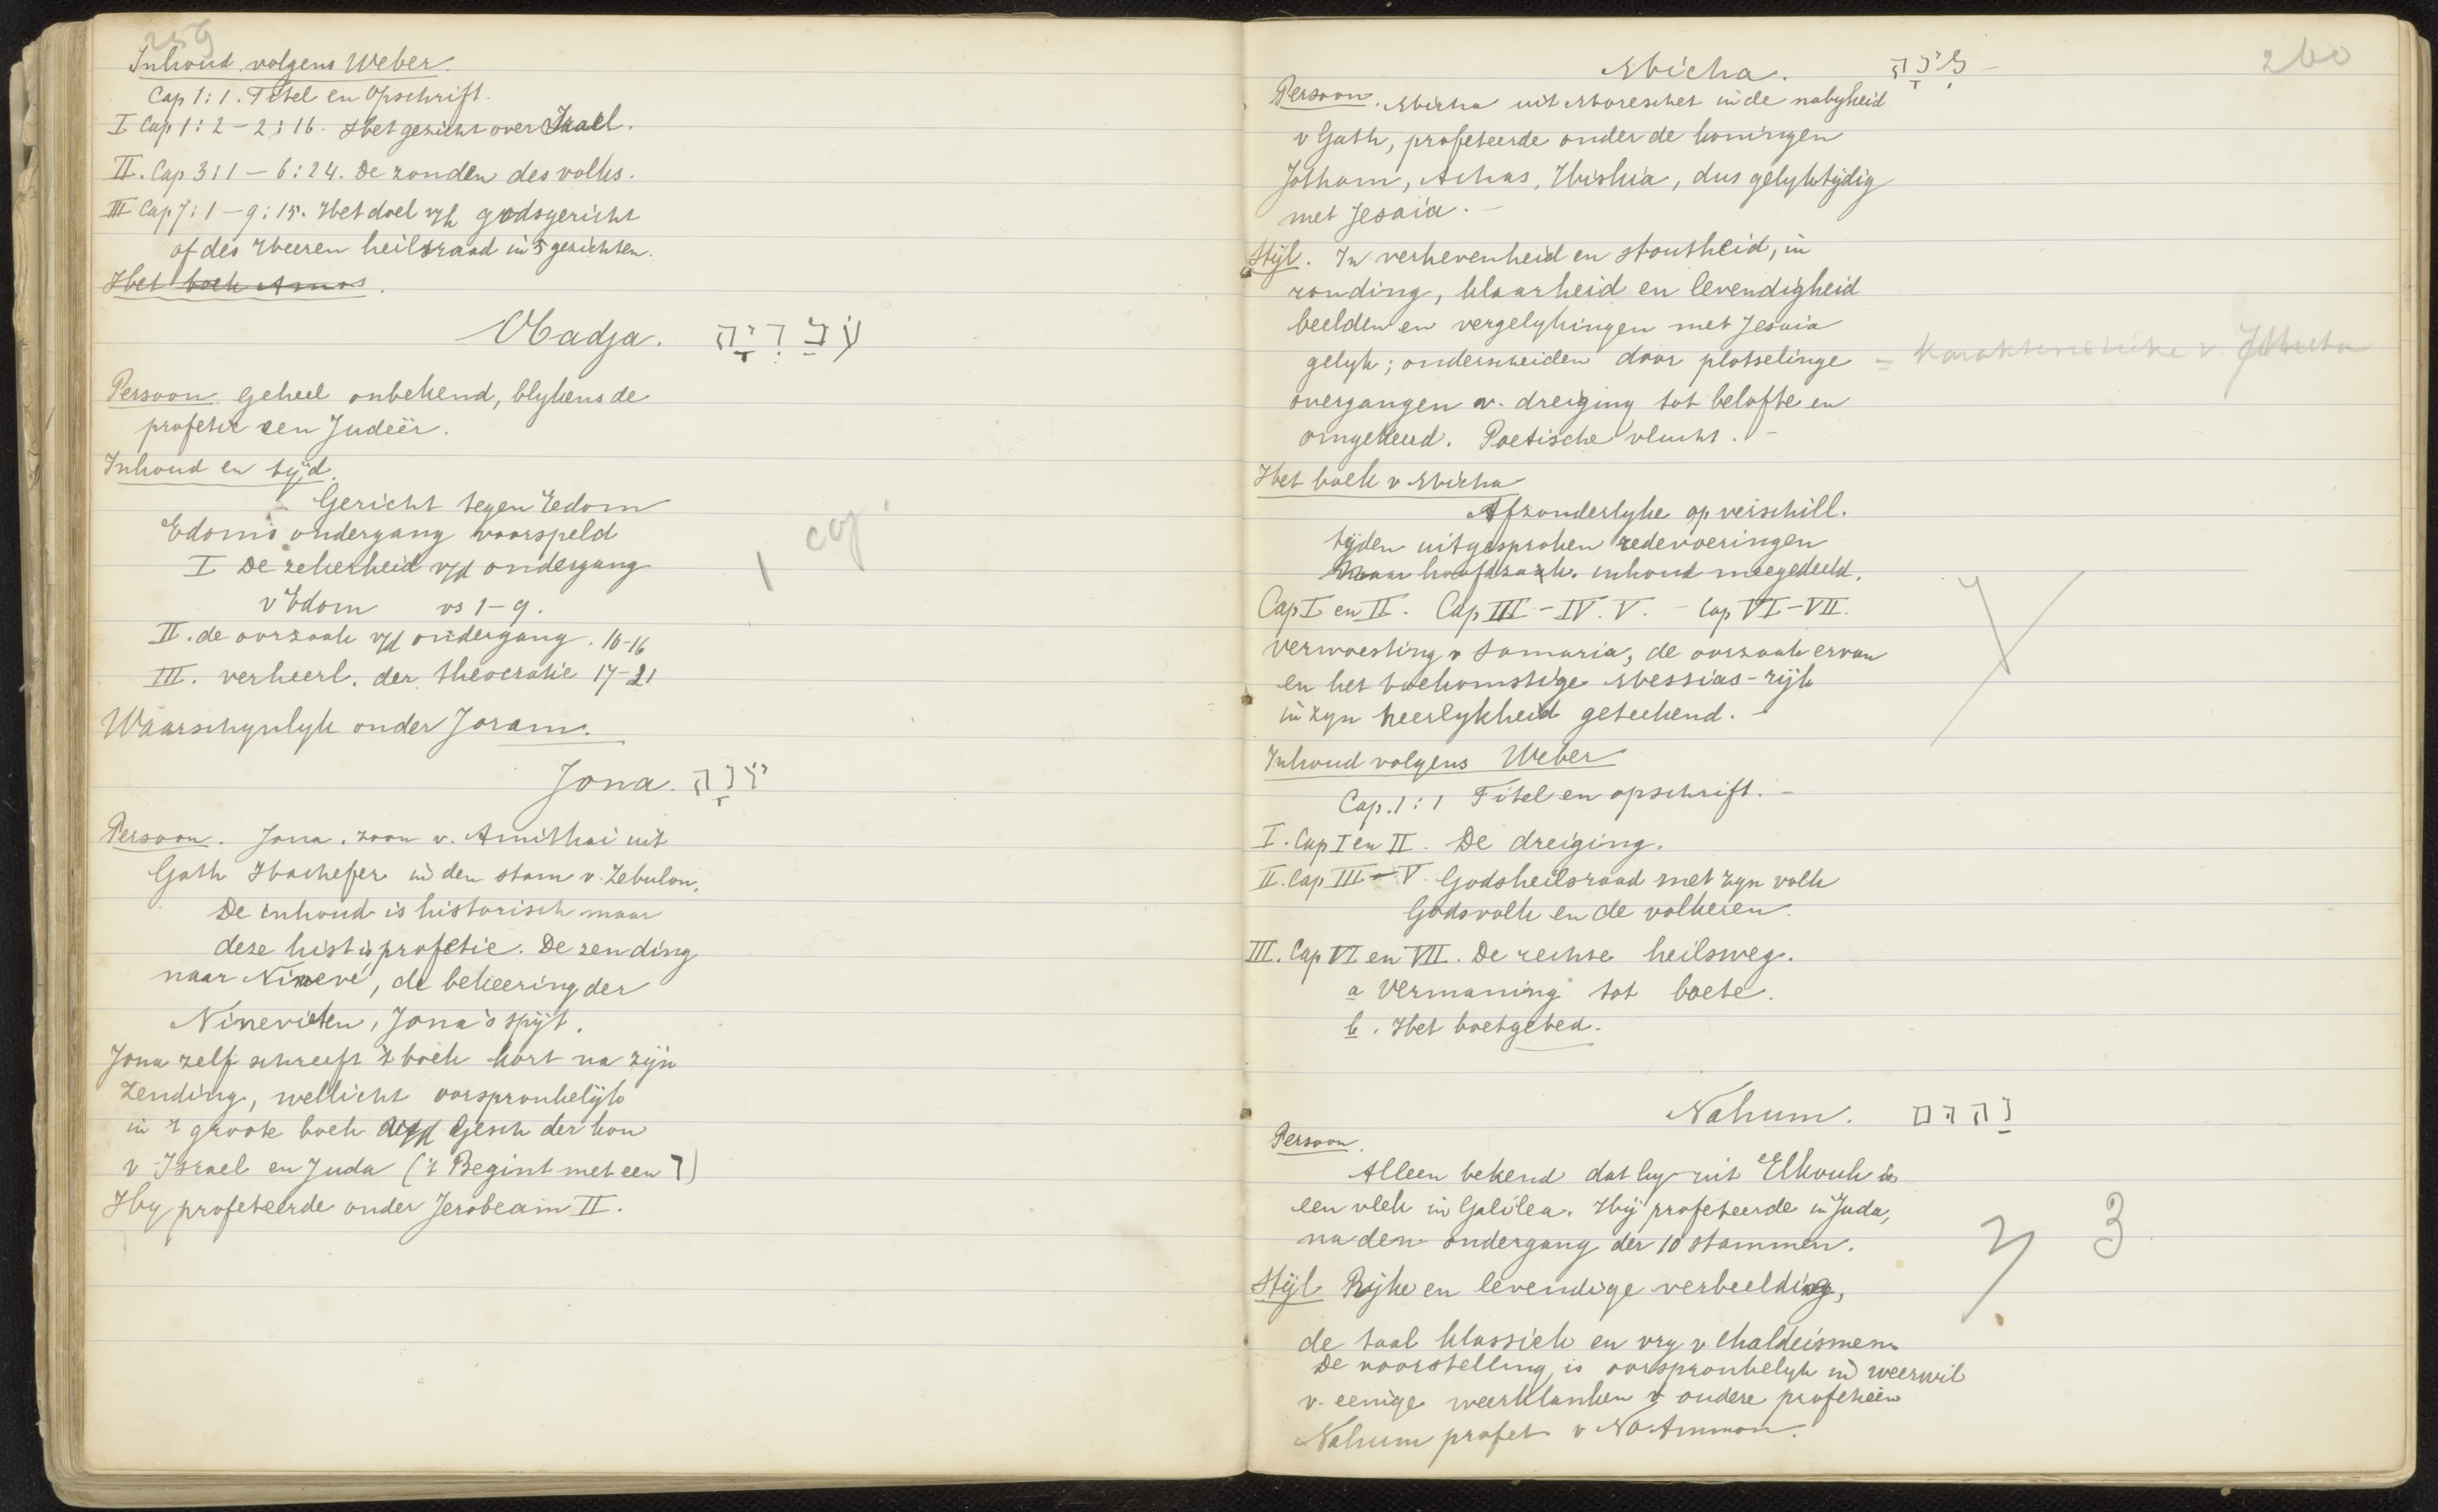 259
Inhoud volgens Weber.
Cap 1:1. Titel en Opschrift.
I Cap 1:2 – 2:16. Het gezicht over Israel.
II. Cap 3:1 – 6:24. De zonden des volks.
III Cap 7:1 – 9:15. Het doel v/h godsgericht
of des Heeren heilsraad in 5 gezichten.
Het boek Amos.
Obadja. עֹבַדְיָה
Persoon. Geheel onbekend, blykens de
profetie een Judeër.
Inhoud en tyd.
Gericht tegen Edom
Edoms ondergang voorspeld
I De zekerheid v/d ondergang
v Edom vs 1–9.
II. de oorzaak v/d ondergang. 10–16
III. verheerl. der theocratie 17–21
Waarschynlyk onder Joram.
1 cf.
Jona. יוֹנָה
Persoon. Jona, zoon v. Amithai uit
Gath Hachefer in den stam v. Zebulon.
De inhoud is historisch maar
deze hist is profetie. De zending
naar Ninevé, de bekeering der
Ninevieten, Jona's spijt.
Jona zelf schreeft 't boek kort na zijn
zending, wellicht oorspronkelijk
in 't groote boek v/d Gesch der kon
v Israel en Juda ('t Begint met een ו)
Hy profeteerde onder Jerobeam II.
260
Micha. מִיכָה –
Persoon. Micha uit Moreschet in de nabyheid
v Gath, profeteerde onder de koningen
Jotham, Achas, Hiskia, dus gelyktydig
met Jesaia. –
Stijl. In verhevenheid en stoutheid, in
ronding, klaarheid en levendigheid
beelden en vergelykingen met Jesaia
gelyk; onderscheiden door plotselinge
overgangen v. dreiging tot belofte en
omgekeerd. Poetische vlucht. –
= karakteristieke v.
Het boek v Micha
Afzonderlyke op verschill.
tijden uitgesproken redevoeringen
Maar hoofdzak. inhoud meegedeeld.
Cap I en II. Cap III – IV. V. – Cap VI – VII.
verwoesting v Samaria, de oorzaak ervan
en het toekomstige Messias-rijk
in zyn heerlykheid geteekend. –
Inhoud volgens Weber
Cap. 1:1 Titel en opschrift. –
I. Cap I en II. De dreiging.
II. Cap III – V. Gods heilsraad met zyn volk
Gods volk en de volkeren.
III. Cap VI en VII. De rechte heilsweg.
a Vermaning tot boete.
b. Het boetgebed.
Nahum. נַחוּם
Persoon.
Alleen bekend dat hy uit Elkosch is
een vlek in Galilea. Hij profeteerde in Juda,
na den ondergang der 10 stammen.
3
Stijl Rijke en levendige verbeelding,
de taal klassiek en vry v Chaldeismen.
De voorstelling is oorspronkelyk in weerwil
v. eenige weerklanken v oudere profetieën
Nahum profet. v No Ammon.